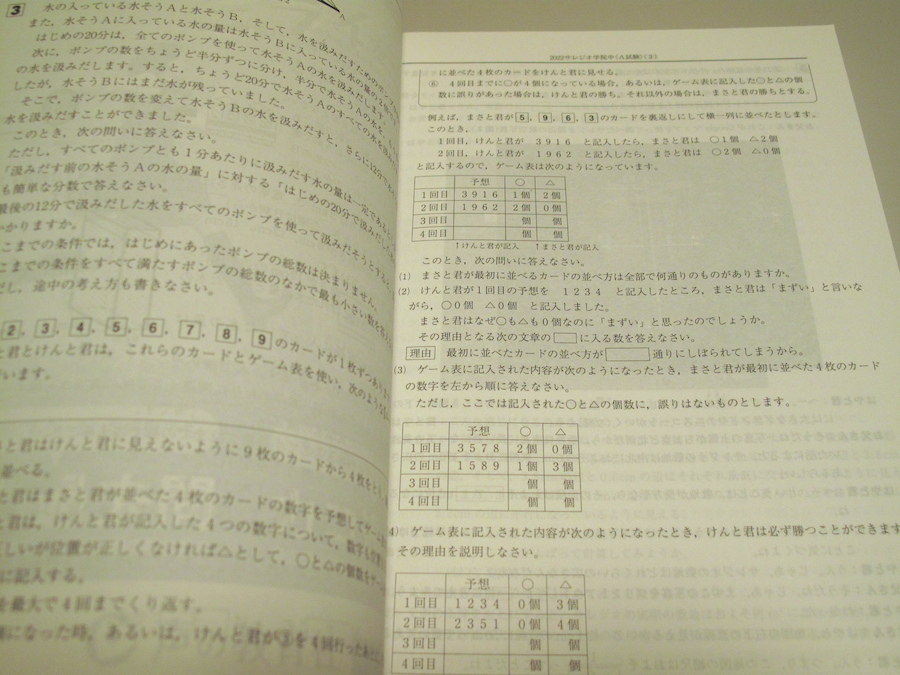 3 水の入っている水そうAと水そうB，そして，水を汲みだすための
また，水そうAに入っている水の量は水そうBに入っている水の量の
はじめの20分は，全てのポンプを使って水そうAの水を汲みだし
次に，ポンプの数をちょうど半分ずつに分け，半分で水そうAの水を，
の水を汲みだします。すると，ちょうど20分で水そうAのすべての水を
したが，水そうBにはまだ水が残っていました。
そこで，ポンプの数を変えて水そうBの水を汲みだすと，さらに12分で
水を汲みだすことができました。
このとき，次の問いに答えなさい。
ただし，すべてのポンプとも1分あたりに汲みだす水の量は一定で
「汲みだす前の水そうAの水の量」に対する「はじめの20分で汲みだした
も簡単な分数で答えなさい。
最後の12分で汲みだした水をすべてのポンプを使って汲みだそうとすると
かりますか。
こまでの条件では，はじめにあったポンプの総数は決まりません。
こまでの条件をすべて満たすポンプの総数のなかで最も小さい数を
だし，途中の考え方も書きなさい。
2，3，4，5，6，7，8，9のカードが1枚ずつあり
君とけんと君は，これらのカードとゲーム表を使い，次のような
います。
と君はけんと君に見えないように9枚のカードから4枚を
並べる。
と君はまさと君が並べた4枚のカードの数字を予想して
と君は，けんと君が記入した4つの数字について，数字も
正しいが位置が正しくなければ△として，○と△の個数を
に記入する。
を最大で4回までくり返す。
になった時，あるいは，けんと君が③を4回行った
2022サレジオ学院中(A試験)(3)
に並べた4枚のカードをけんと君に見せる。
⑥ 4回目までに○が4個になっている場合，あるいは，ゲーム表に記入した○と△の個
数に誤りがあった場合は，けんと君の勝ち，それ以外の場合は，まさと君の勝ちとする。
例えば，まさと君が5，9，6，3のカードを裏返しにして横一列に並べたとします。
このとき，
1回目，けんと君が 3916 と記入したら，まさと君は ○1個 △2個
2回目，けんと君が 1962 と記入したら，まさと君は ○2個 △0個
と記入するので，ゲーム表は次のようになっています。
予想 ○ △
1回目 3916 1個 2個
2回目 1962 2個 0個
3回目 個 個
4回目 個 個
↑けんと君が記入 ↑まさと君が記入
このとき，次の問いに答えなさい。
(1) まさと君が最初に並べるカードの並べ方は全部で何通りのものがありますか。
(2) けんと君が1回目の予想を 1234 と記入したところ，まさと君は「まずい」と言いな
がら，○0個 △0個 と記入しました。
まさと君はなぜ○も△も0個なのに「まずい」と思ったのでしょうか。
その理由となる次の文章の□に入る数を答えなさい。
理由 最初に並べたカードの並べ方が□通りにしぼられてしまうから。
(3) ゲーム表に記入された内容が次のようになったとき，まさと君が最初に並べた4枚のカード
の数字を左から順に答えなさい。
ただし，ここでは記入された○と△の個数に，誤りはないものとします。
予想 ○ △
1回目 3578 2個 0個
2回目 1589 1個 3個
3回目 個 個
4回目 個 個
4) ゲーム表に記入された内容が次のようになったとき，けんと君は必ず勝つことができます
その理由を説明しなさい。
予想 ○ △
1回目 1234 0個 3個
2回目 2351 0個 4個
3回目 個 個
4回目 個 個